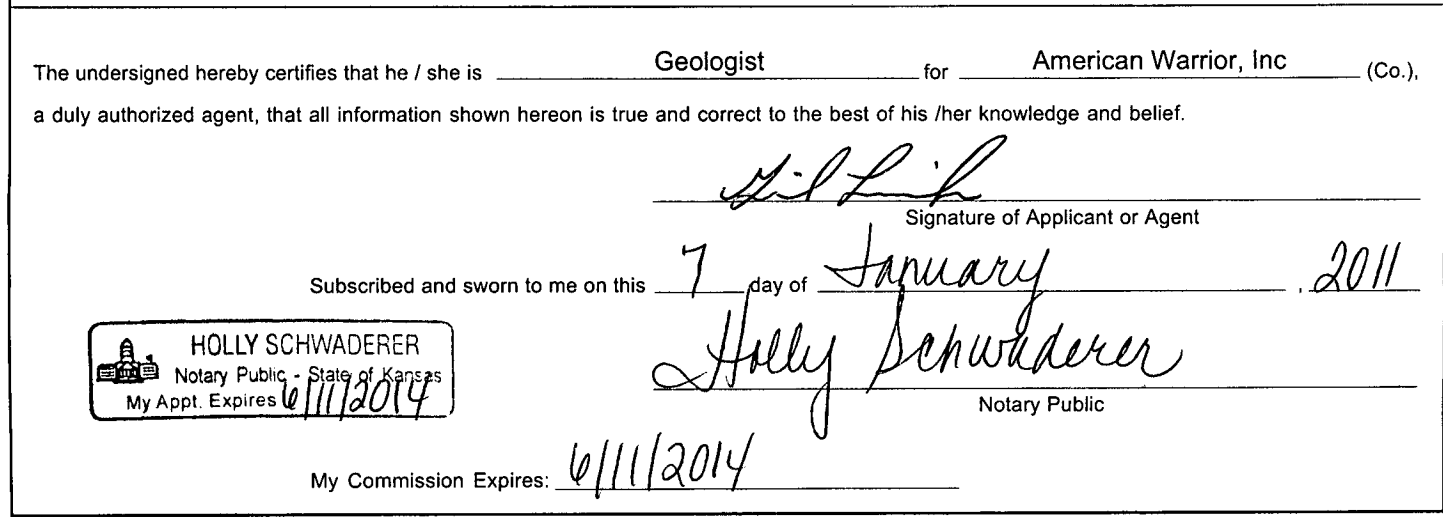 The undersigned hereby certifies that he / she is Geologist for American Warrior, Inc (Co.),
a duly authorized agent, that all information shown hereon is true and correct to the best of his /her knowledge and belief.
Signature of Applicant or Agent
Subscribed and sworn to me on this 7 day of January , 2011
HOLLY SCHWADERER
Notary Public - State of Kansas
My Appt. Expires 6/11/2014
Holly Schwaderer
Notary Public
My Commission Expires: 6/11/2014